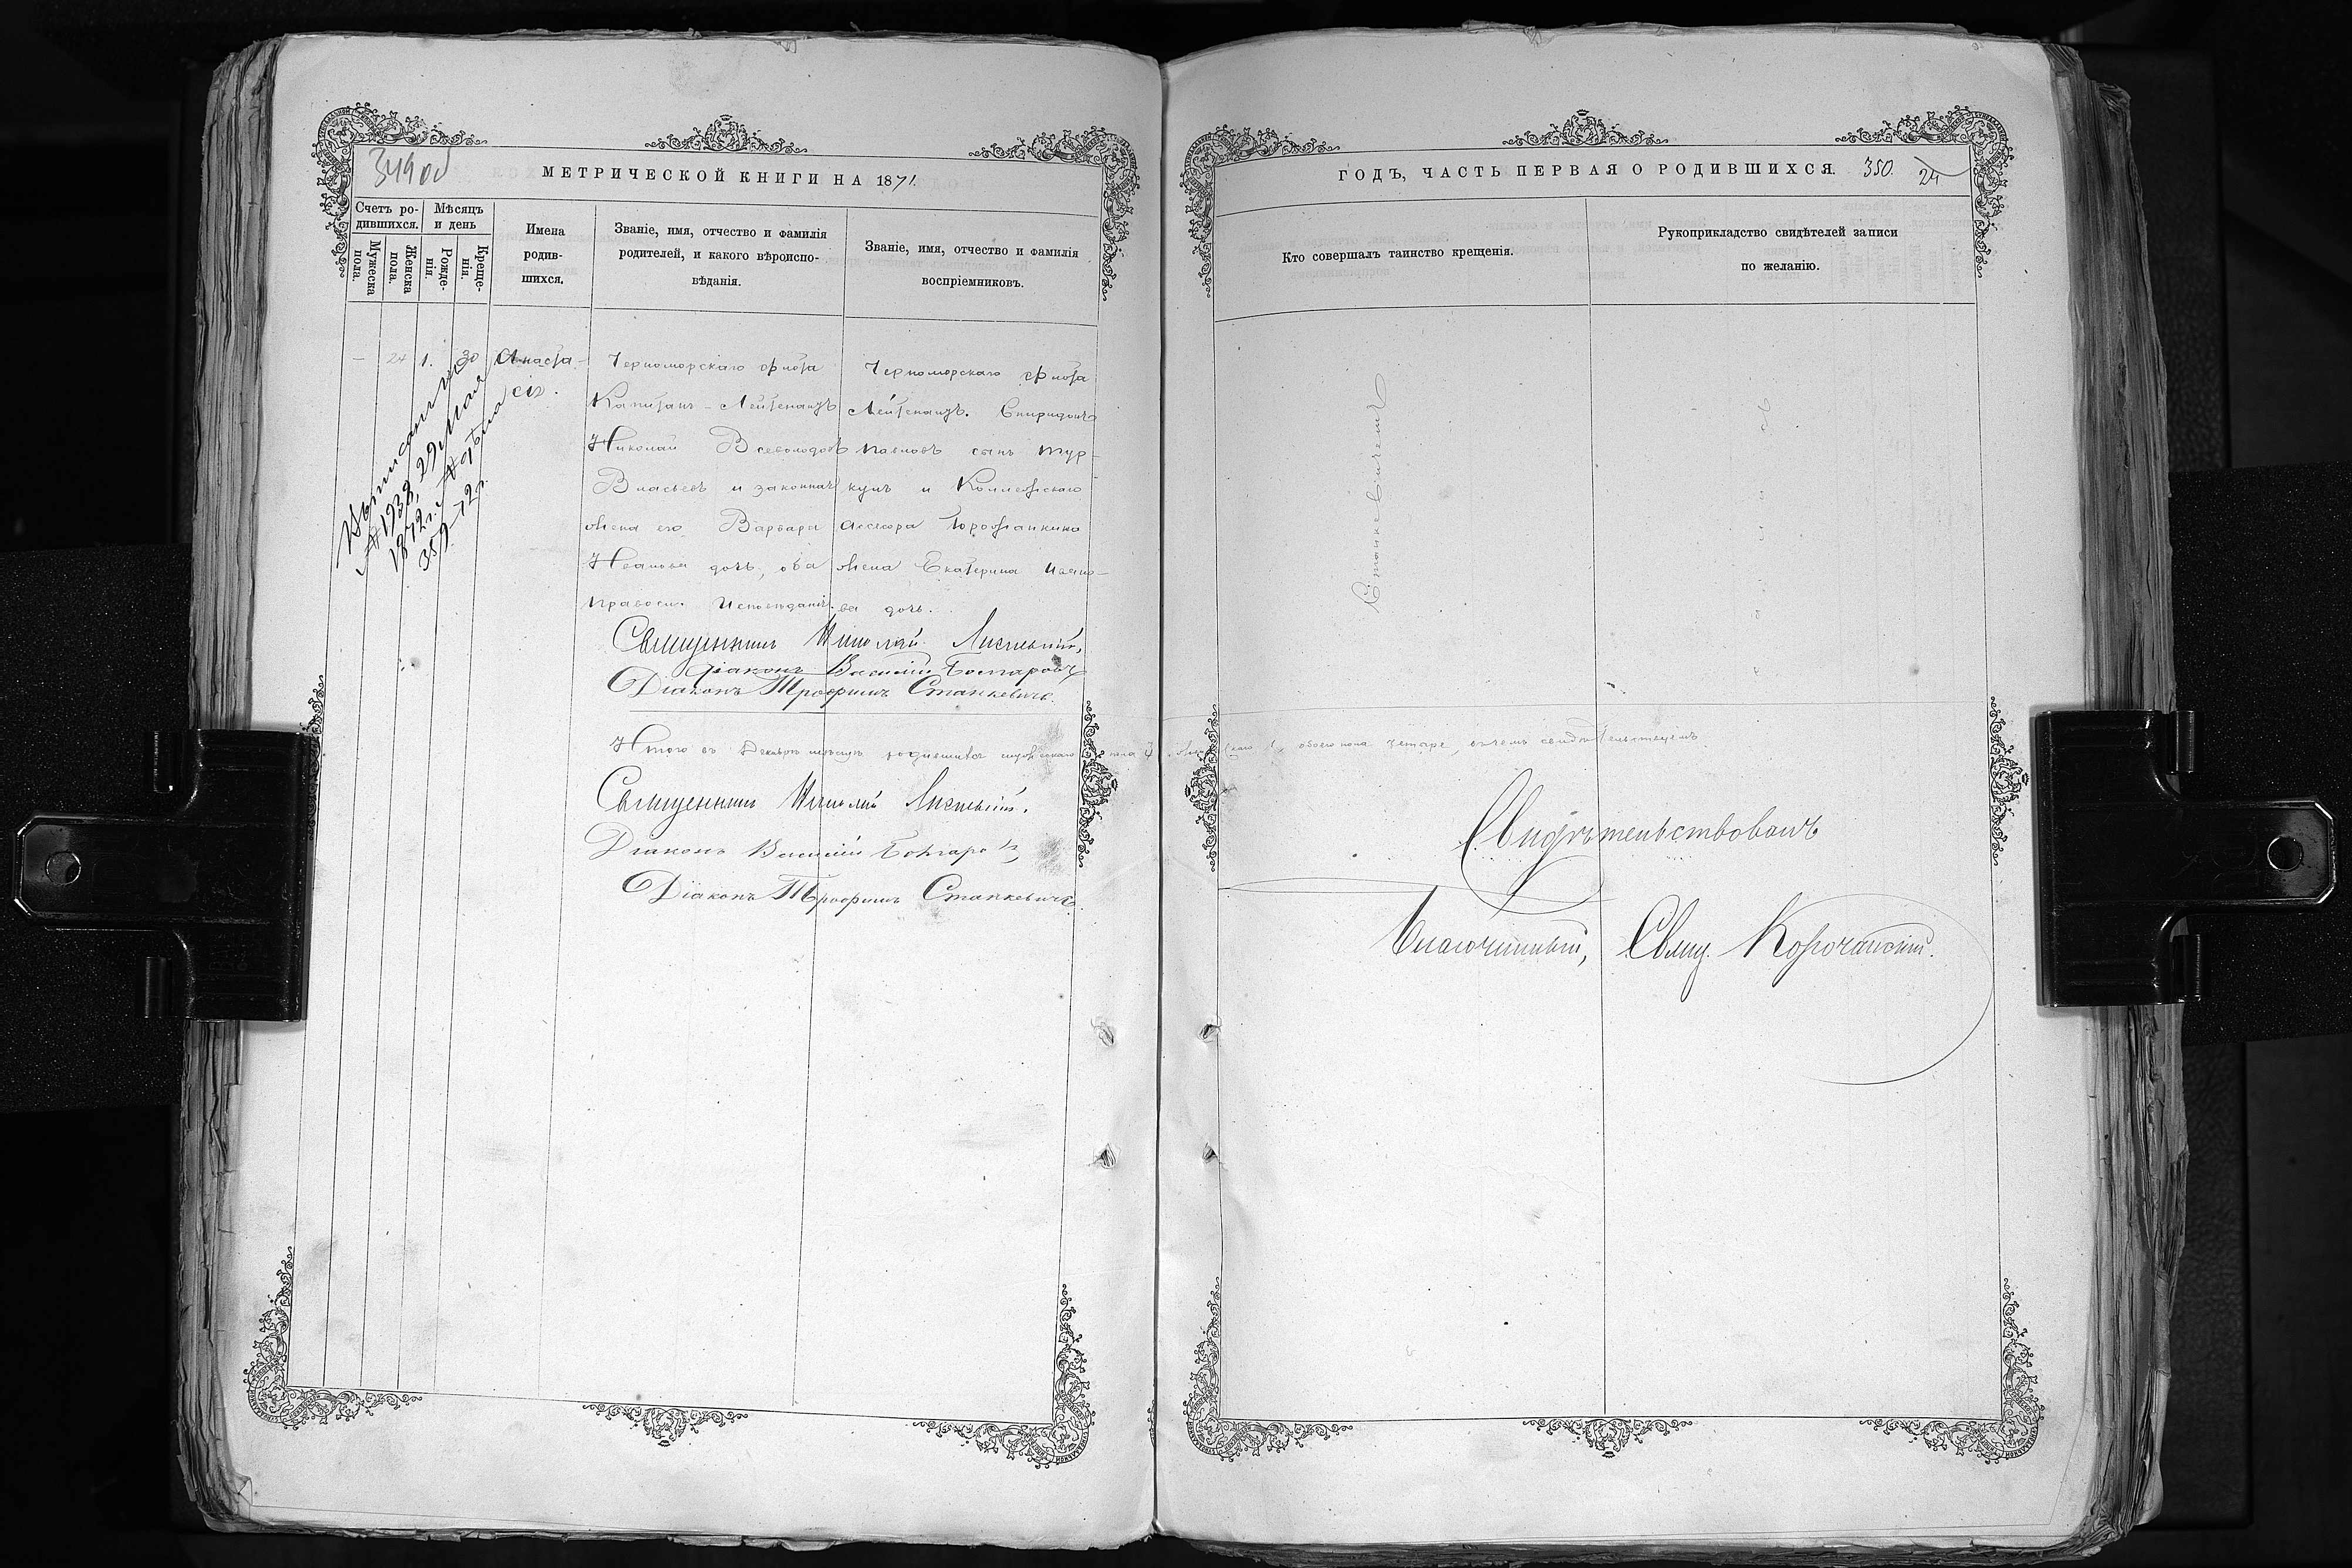 349 об
МЕТРИЧЕСКОЙ КНИГИ НА 1871.
Счетъ ро-
дившихся.
Мужеска
пола.
Женска
пола.
Мѣсяцъ
и день
Рожде-
нія.
Креще-
нія.
Имена
родив-
шихся.
Званіе, имя, отчество и фамилія
родителей, и какого вѣроиспо-
вѣданія.
Званіе, имя, отчество и фамилія
воспріемниковъ.
— 24 1. 30 Анаста-
сія.
№ 1938, 29 Мая
1872 г.
359—72 г.
Черноморскаго флота
Капитанъ-Лейтенантъ
Николай Всеволодовъ
Власьевъ и законная
жена его Варвара
Иванова дочь, оба
правосл. Исповѣданія.
Черноморскаго флота
Лейтенантъ. Спиридонъ
Павловъ сынъ Тур-
кулъ и Коллежскаго
Ассесора
жена Екатерина Ивано-
ва дочь.
Священникъ Николай
Діаконъ Василій
Діаконъ Трофимъ Станкевичъ.
Итого въ Декабрѣ мѣсяцѣ родившихся мужескаго пола 3 женскаго 1, обоего пола четыре, въ чемъ свидѣтельствуемъ.
Священникъ Николай
Діаконъ Василій
Діаконъ Трофимъ Станкевичъ.
ГОДЪ, ЧАСТЬ ПЕРВАЯ О РОДИВШИХСЯ. 350. 24
Кто совершалъ таинство крещенія.
Рукоприкладство свидѣтелей записи
по желанію.
Станкевичемъ
Свидѣтельствовалъ
Благочинный, Свящ. Корочанскій.